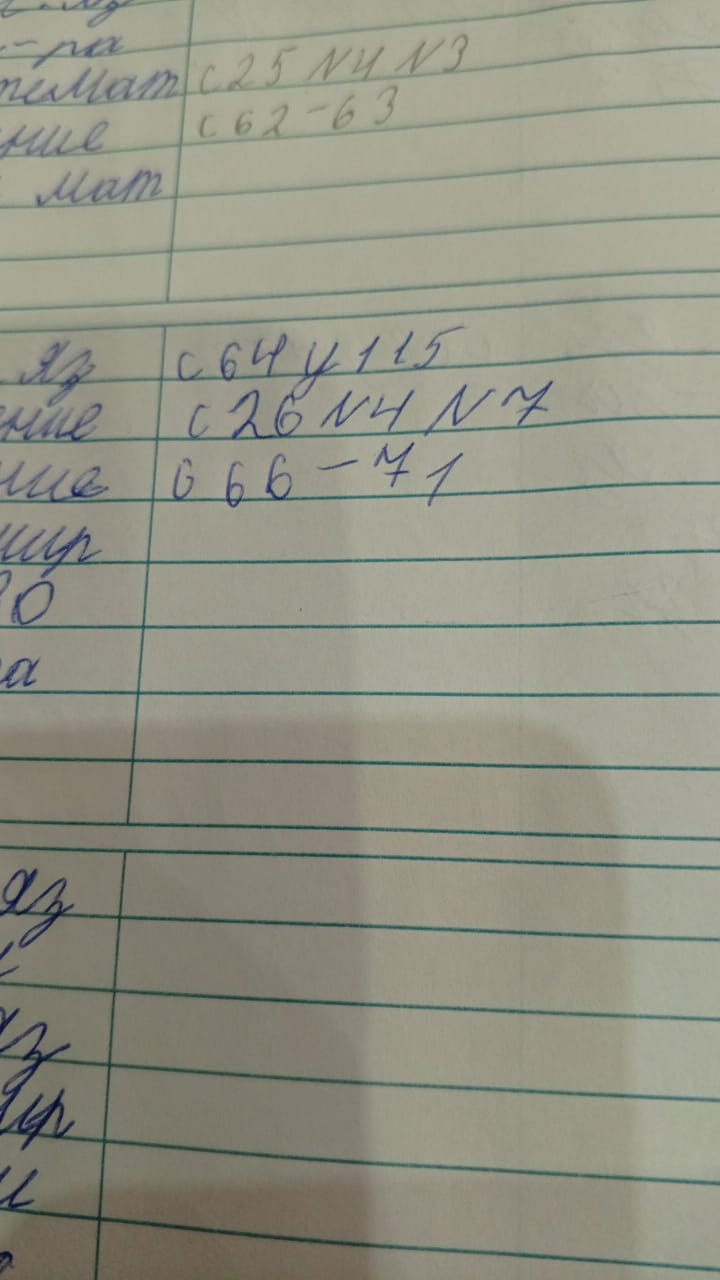 -ра
темат с 25 N4 N3
ние с 62-63
мат
яз с 64 у 115
ние с 26 N4 N7
ние с 66-71
мир
ЗО
а
яз
яз
мир